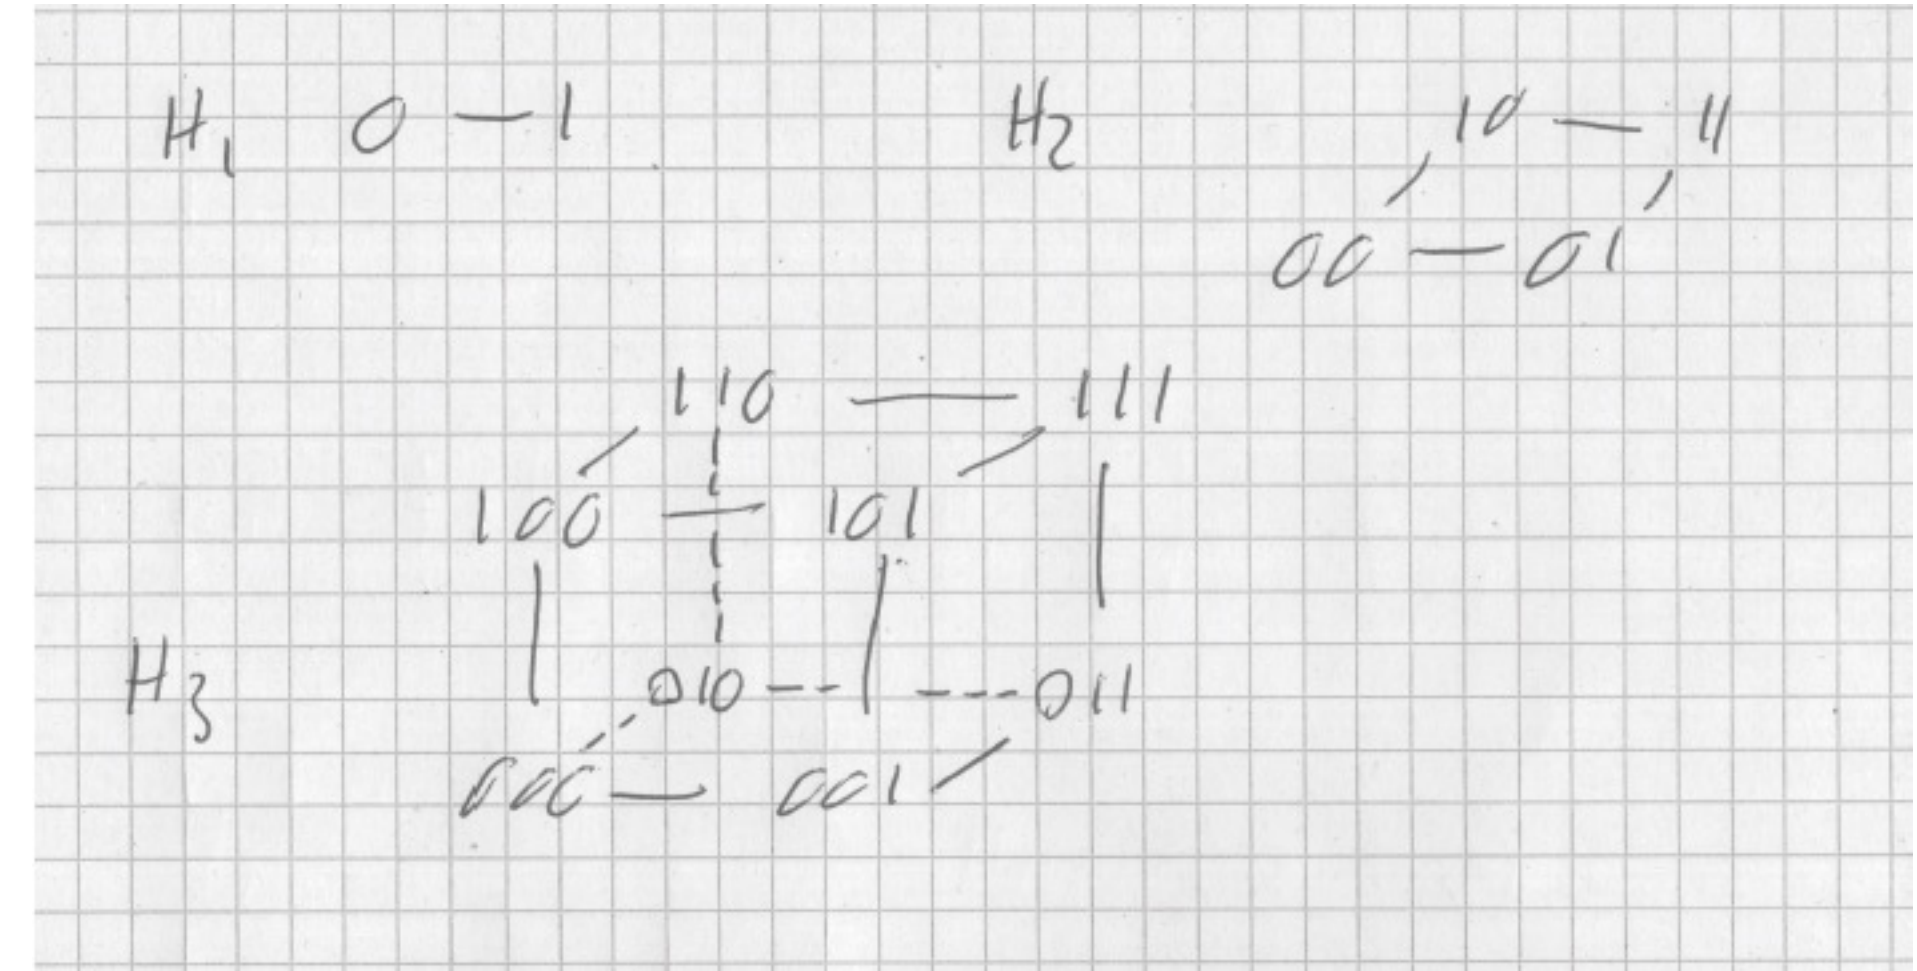 H₁ 0 — 1 H₂ 10 — 11
00 — 01
110 — 111
100 — 101
H₃ 010 --- 011
000 — 001